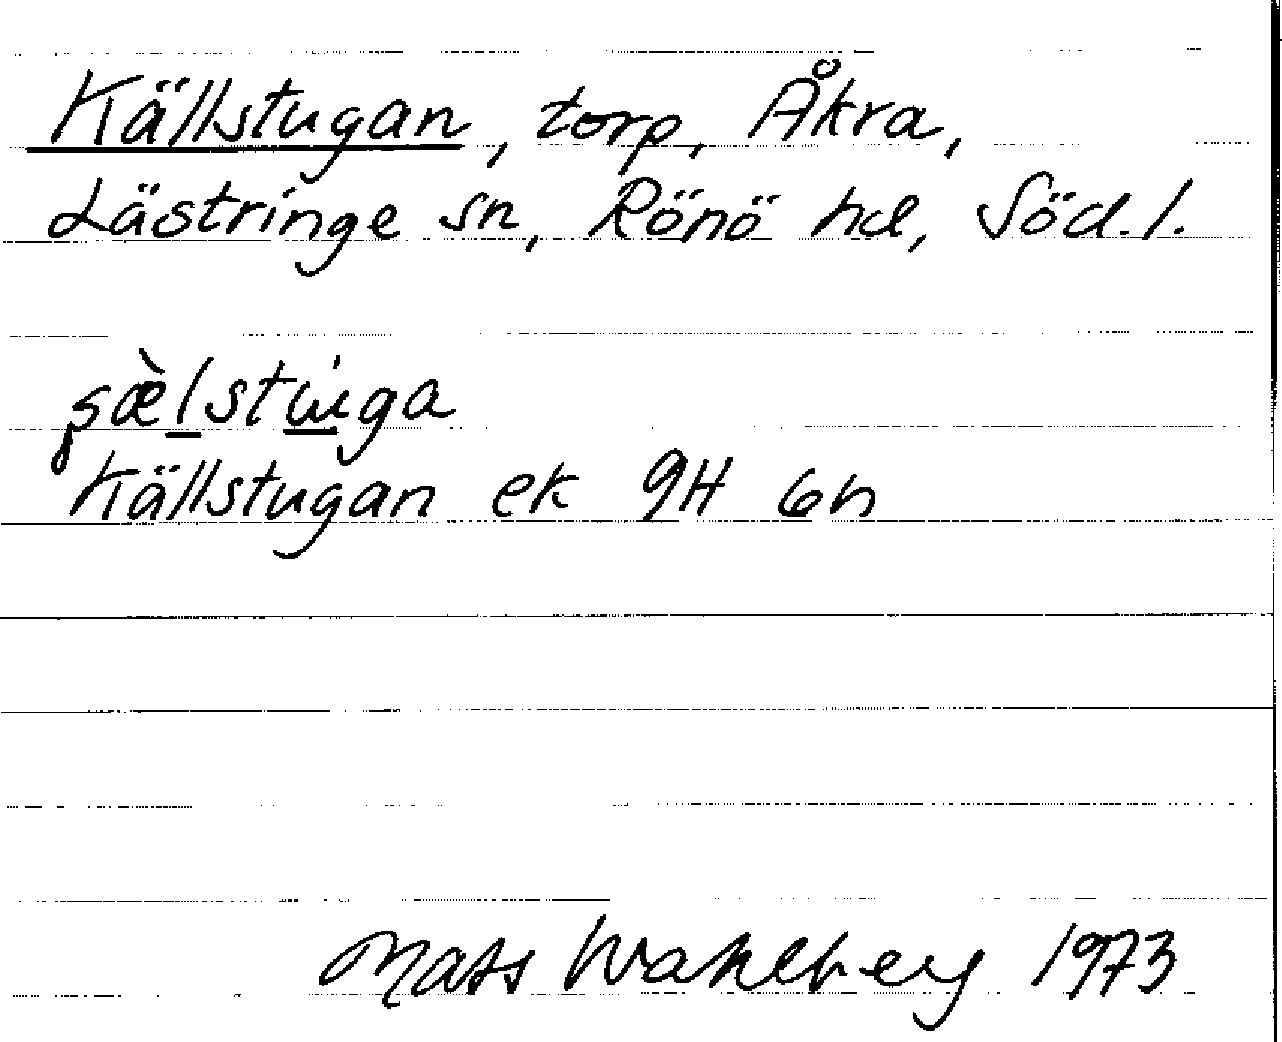 Källstugan, torp, Åkra,
Lästringe sn, Rönö hd, Söd. l.
Källstugan ek 9H 6h
Mats Wahlberg 1973